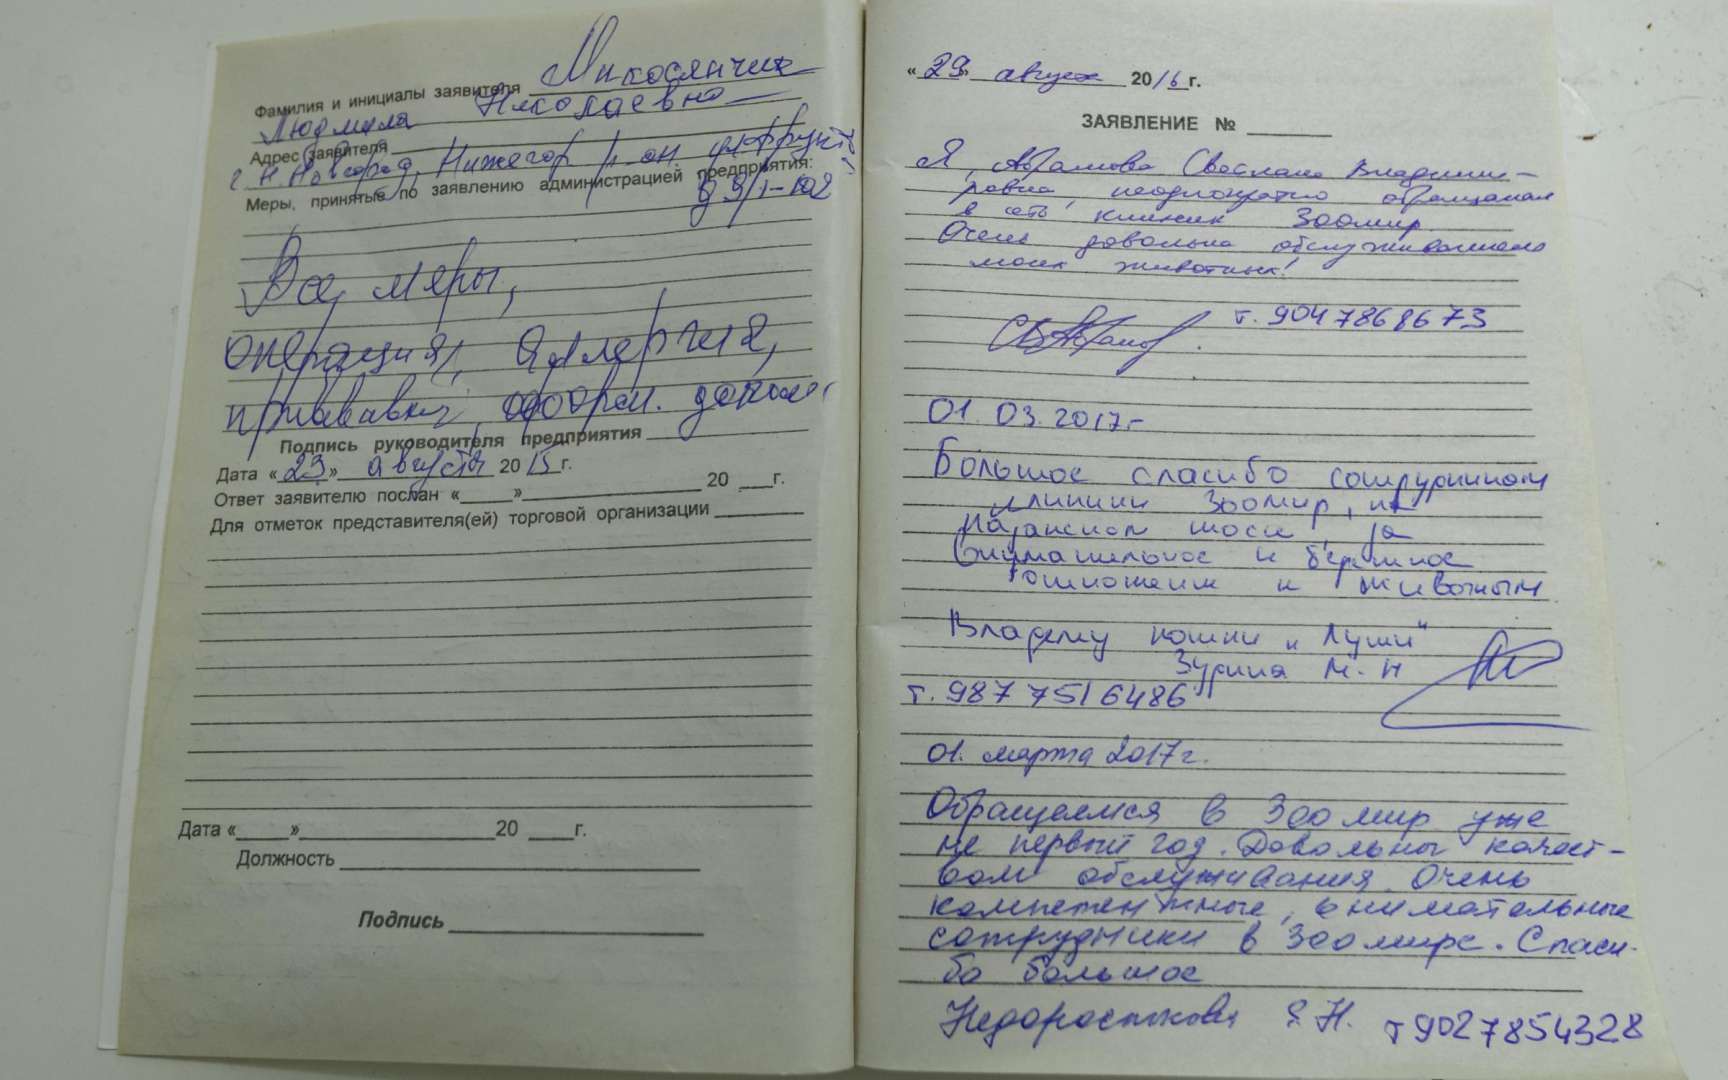 Фамилия и инициалы заявителя
Людмила Николаевна
Адрес заявителя
г. Н.Новгород, Нижегор р-он.
Меры, принятые по заявлению администрацией предприятия:
Все меры,
операция, аллергия,
прививки оформ.
Подпись руководителя предприятия
Дата «23» августа 2015г.
Ответ заявителю послан «___»___ 20 ___г.
Для отметок представителя(ей) торговой организации
Дата «___»___ 20 ___г.
Должность
Подпись
«29» август 2016г.
ЗАЯВЛЕНИЕ №
Я, Абрамова Светлана Владими-
ровна, неоднократно обращалась
в сеть клиник Зоомир.
Очень довольна обслуживанием
моих животных!
т. 9047868673
01.03.2017г
Большое спасибо сотрудникам
клиники Зоомир, на
Казанском шоссе, за
внимательное и бережное
отношение к животным
Владелец кошки "Луши"
М.Н
т. 9877516486
01. марта 2017г.
Обращаемся в Зоомир уже
не первый год. Довольны качест-
вом обслуживания. Очень
компетентные, внимательные
сотрудники в Зоомире. Спаси-
бо большое
Недоросткова Я.Н. т9027854328